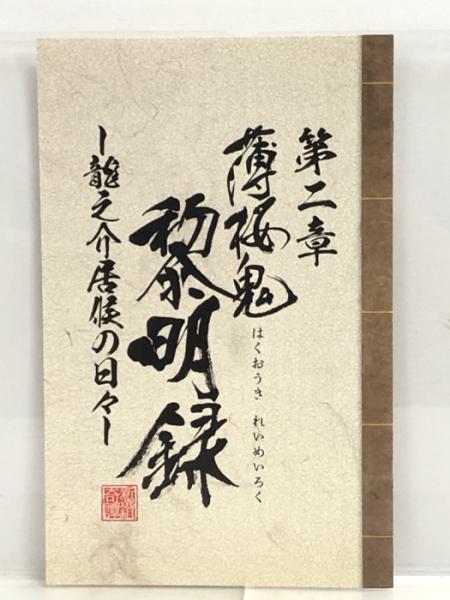 第二章
薄桜鬼
黎明録
はくおうき れいめいろく
－龍之介居候の日々－